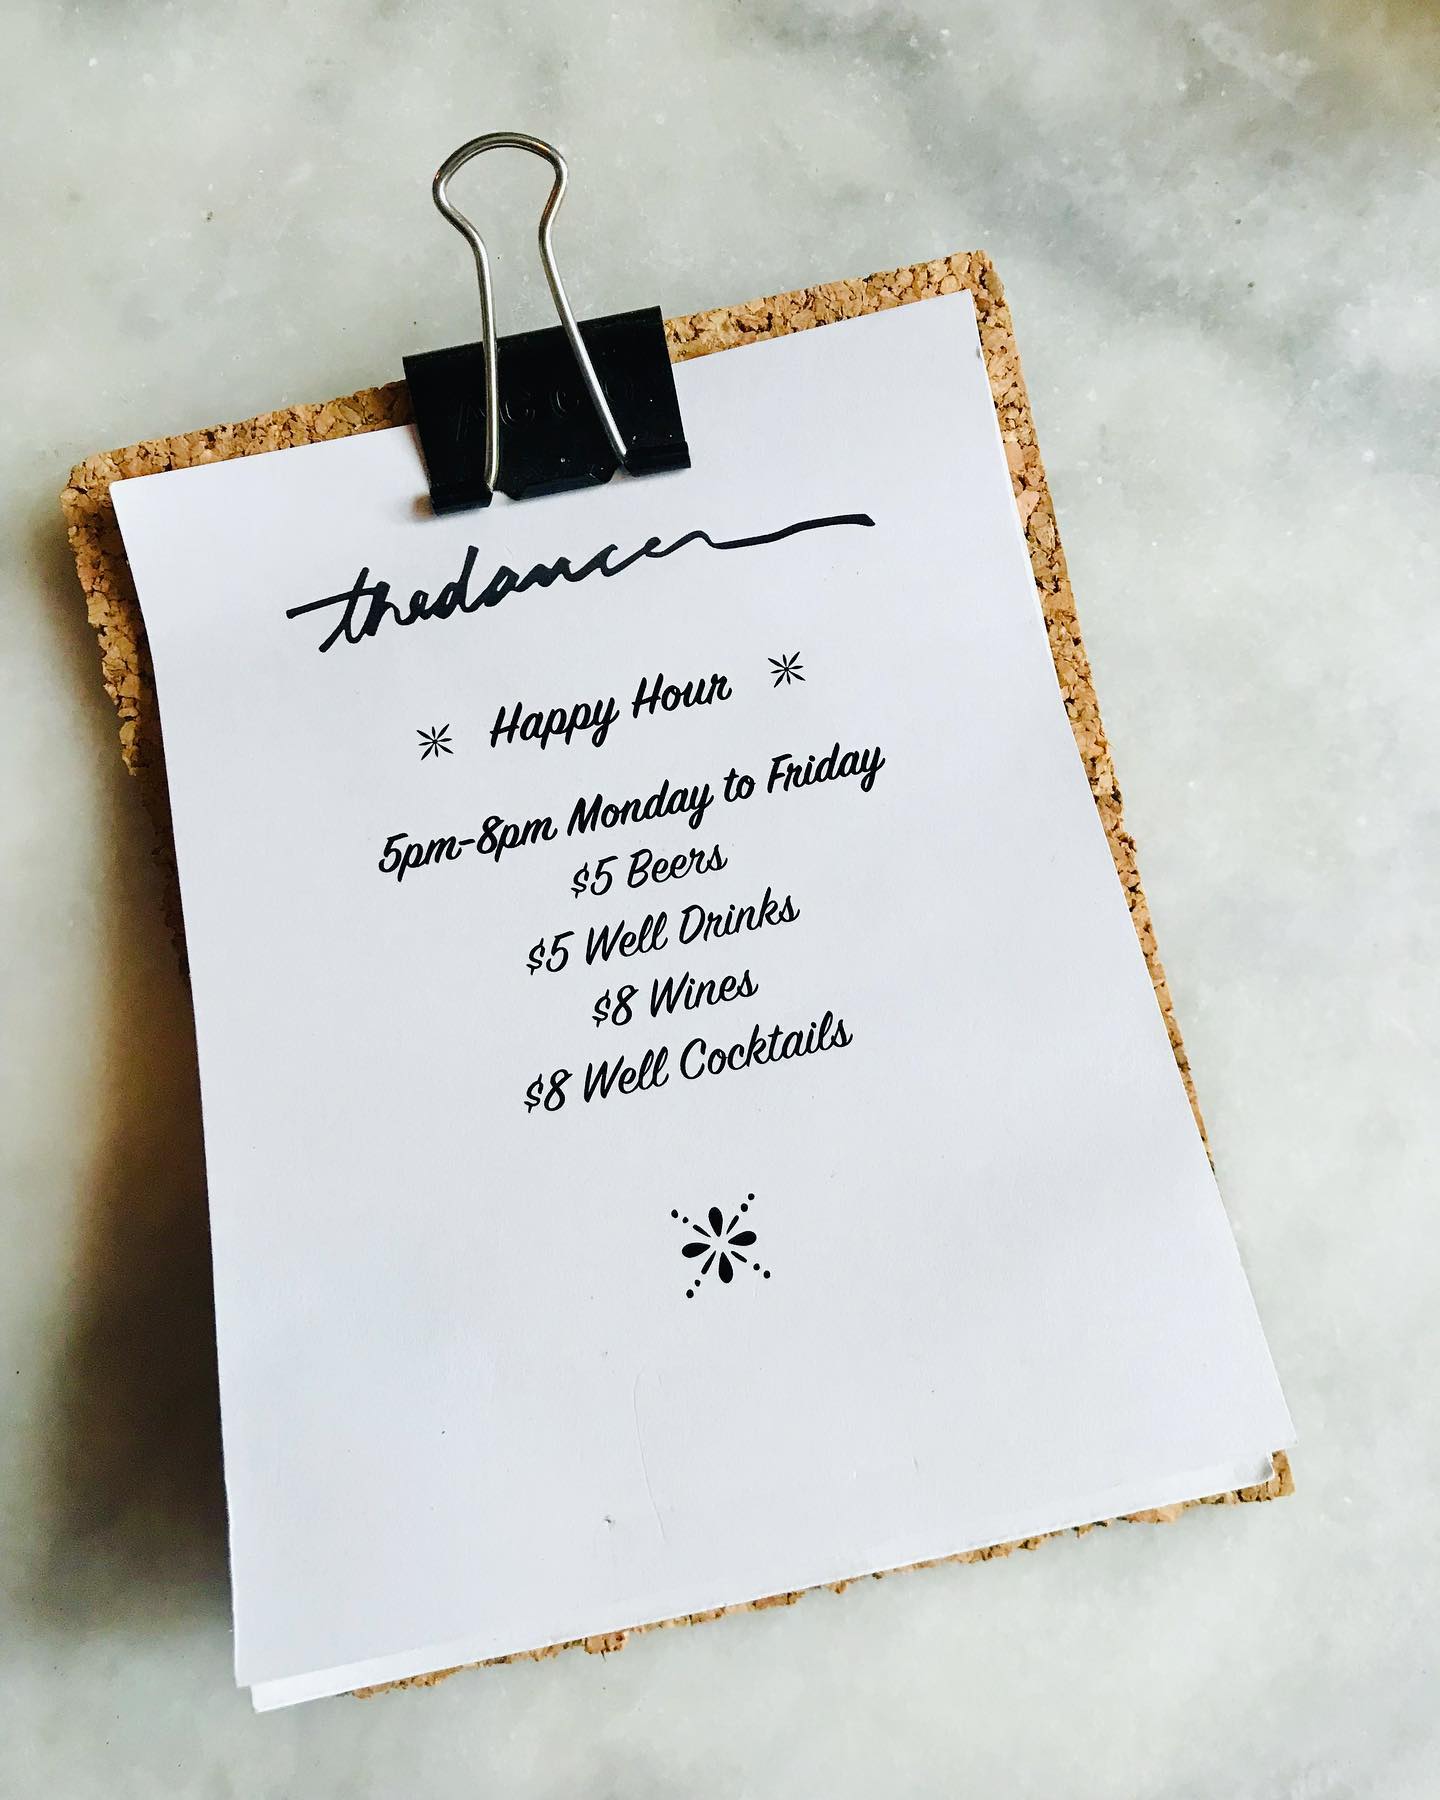 thedancer
Happy Hour
5pm-8pm Monday to Friday
$5 Beers
$5 Well Drinks
$8 Wines
$8 Well Cocktails